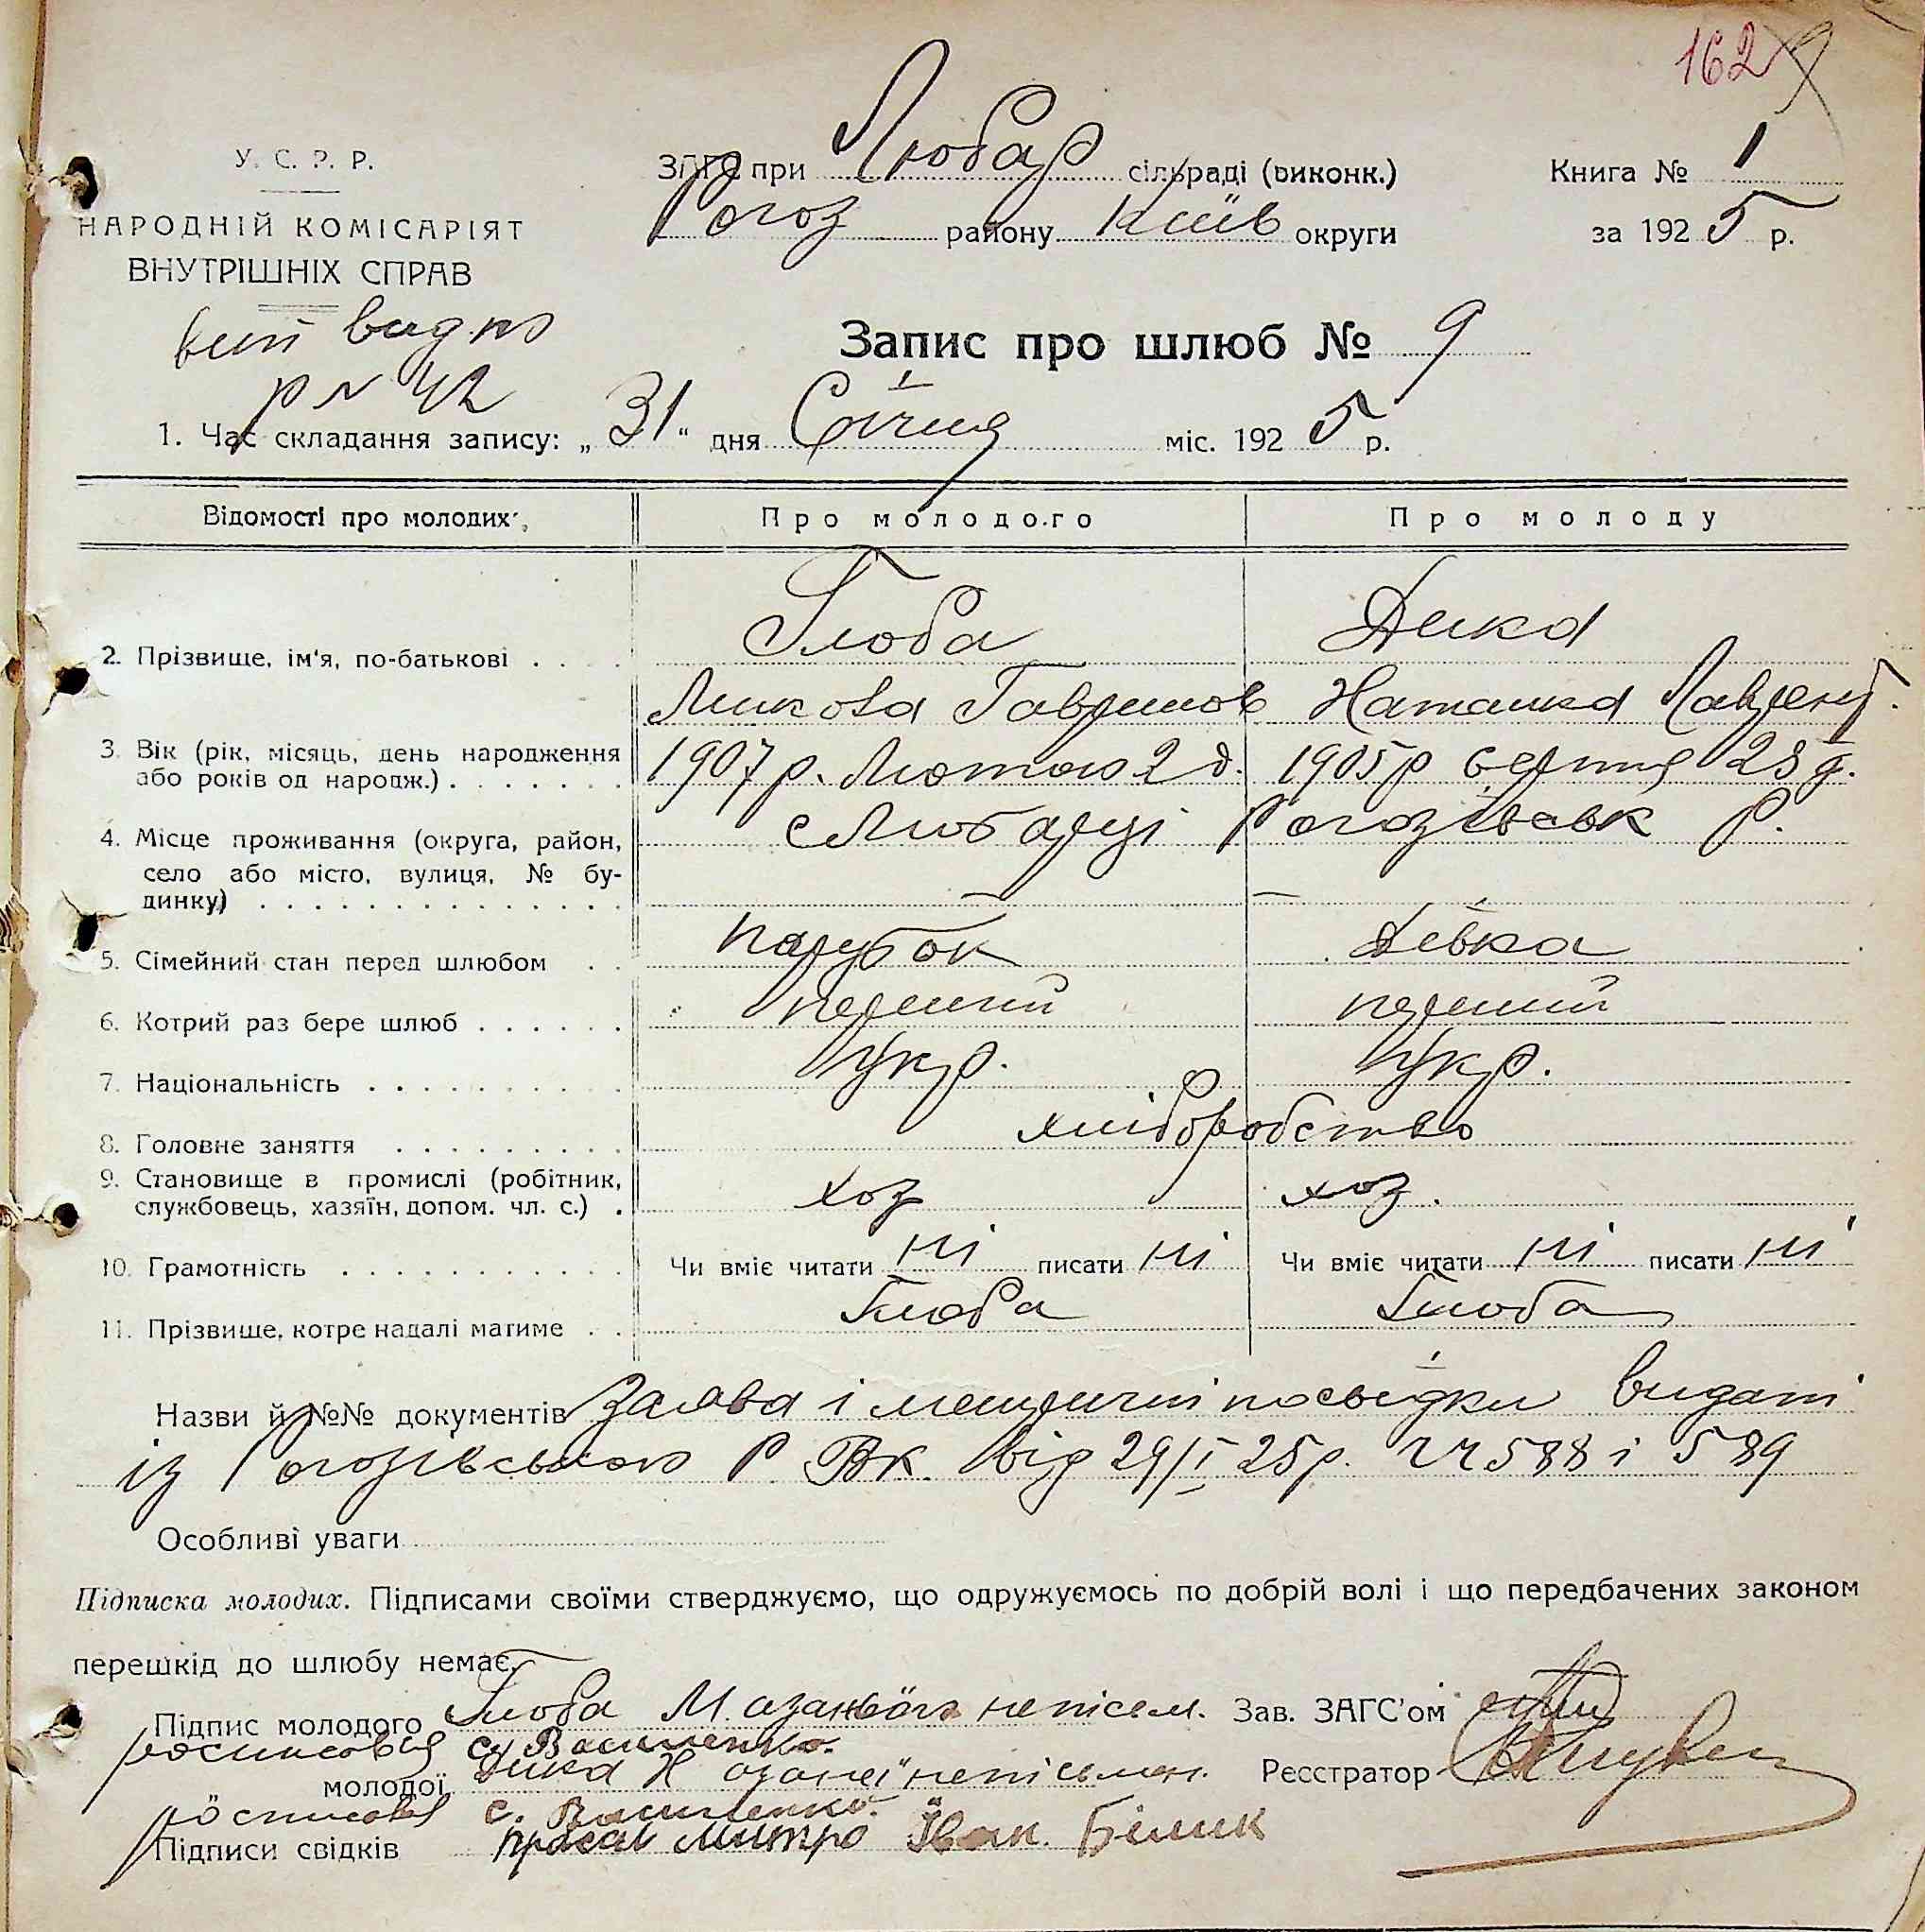 162
У. С. Р. Р.
ЗАГС при Любар сільраді (виконк.)
Книга № 1
НАРОДНІЙ КОМІСАРІЯТ
Рогоз району Київ округи
за 1925 р.
ВНУТРІШНІХ СПРАВ
вип видно
Запис про шлюб № 9
р № 42
1. Час складання запису: „31“ дня Січня міс. 1925 р.
Відомості про молодих
Про молодого
Про молоду
Глоба
Дика
2. Прізвище, ім'я, по-батькові
Микола Гаврилов
Наталка Лаврент.
3. Вік (рік, місяць, день народження
або років од народж.)
1907 р. Лютого 2 д.
1905 р серпня 28 д.
4. Місце проживання (округа, район,
с Любарці Рогозівськ Р.
село або місто, вулиця, № бу-
динку)
5. Сімейний стан перед шлюбом
парубок
дівка
6. Котрий раз бере шлюб
перший
перший
7. Національність
Укр.
Укр.
8. Головне заняття
хліборобство
9. Становище в промислі (робітник,
службовець, хазяїн, допом. чл. с.)
хоз
хоз.
10. Грамотність
Чи вміє читати ні писати ні
Чи вміє читати ні писати ні
11. Прізвище, котре надалі матиме
Глоба
Глоба
Назви й №№ документів Заява і метричні посвідки видані
із Рогозівського Р В К. від 29/I 25 р. № 588 і 589
Особливі уваги
Підписка молодих. Підписами своїми стверджуємо, що одружуємось по добрій волі і що передбачених законом
перешкід до шлюбу немає.
Підпис молодого Глоба М. неписьм. Зав. ЗАГС'ом
росписався С. Василенко.
молодої Дика Н неписьмен. Реєстратор
росписався С. Василенко.
Підписи свідків Митро Іван. Білик